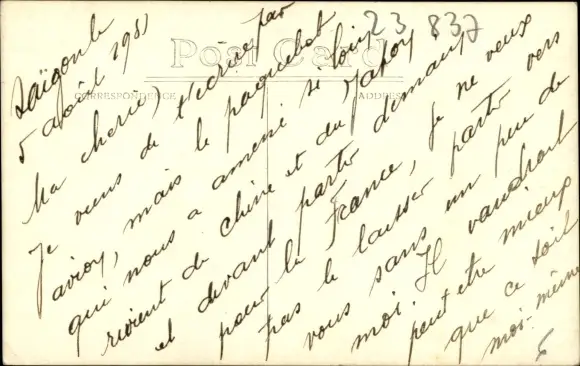 23 837
Post Card
CORRESPONDENCE
ADDRESS
Saïgon le
5 août 1931
Ma cherie,
Je viens de t'écrire par
avion, mais le paquebot
qui nous a amené si loin
revient de Chine et du Japon
et devant partir demain
pour la France, je ne veux
pas le laisser partir vers
vous sans un peu de
moi. Il vaudrait
peut etre mieux
que ce soit
moi-même